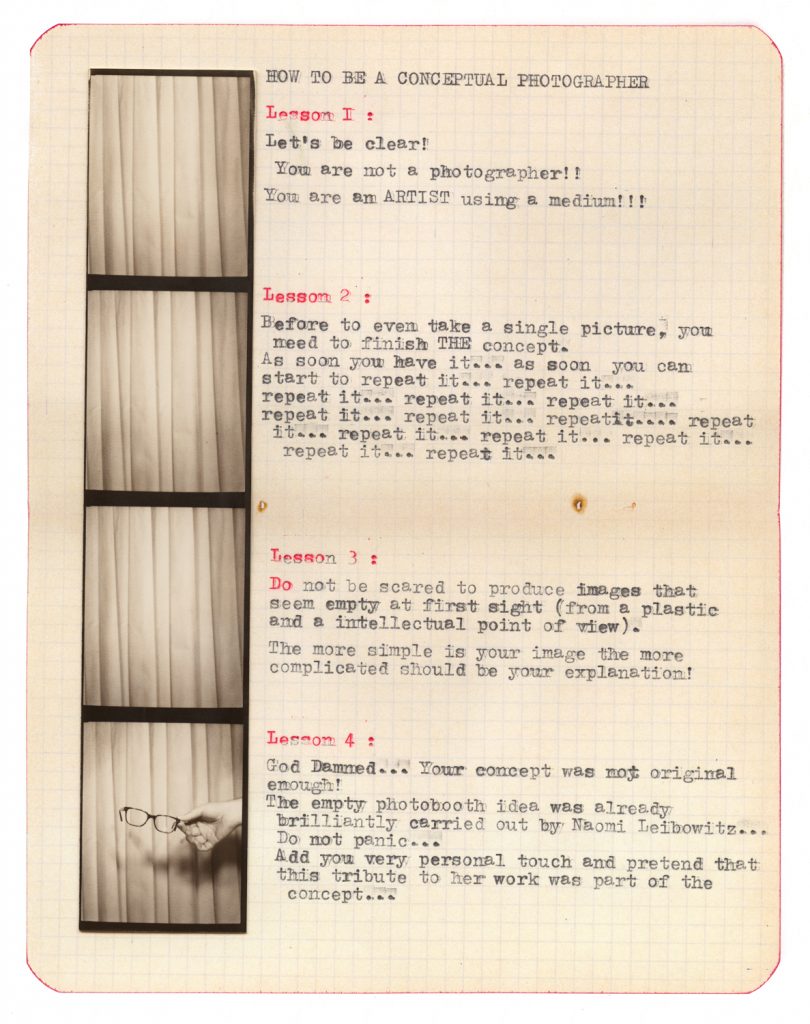 HOW TO BE A CONCEPTUAL PHOTOGRAPHER
Lesson I :
Let's be clear!
You are not a photographer!!
You are an ARTIST using a medium!!!
Lesson 2 :
Before to even take a single picture, you
need to finish THE concept.
As soon you have it... as soon you can
start to repeat it... repeat it...
repeat it... repeat it... repeat it...
repeat it... repeat it... repeatit.... repeat
it... repeat it... repeat it... repeat it...
repeat it... repeat it...
Lesson 3 :
Do not be scared to produce images that
seem empty at first sight (from a plastic
and a intellectual point of view).
The more simple is your image the more
complicated should be your explanation!
Lesson 4 :
God Damned... Your concept was not original
enough!
The empty photobooth idea was already
brilliantly carried out by Naomi Leibowitz...
Do not panic...
Add you very personal touch and pretend that
this tribute to her work was part of the
concept...